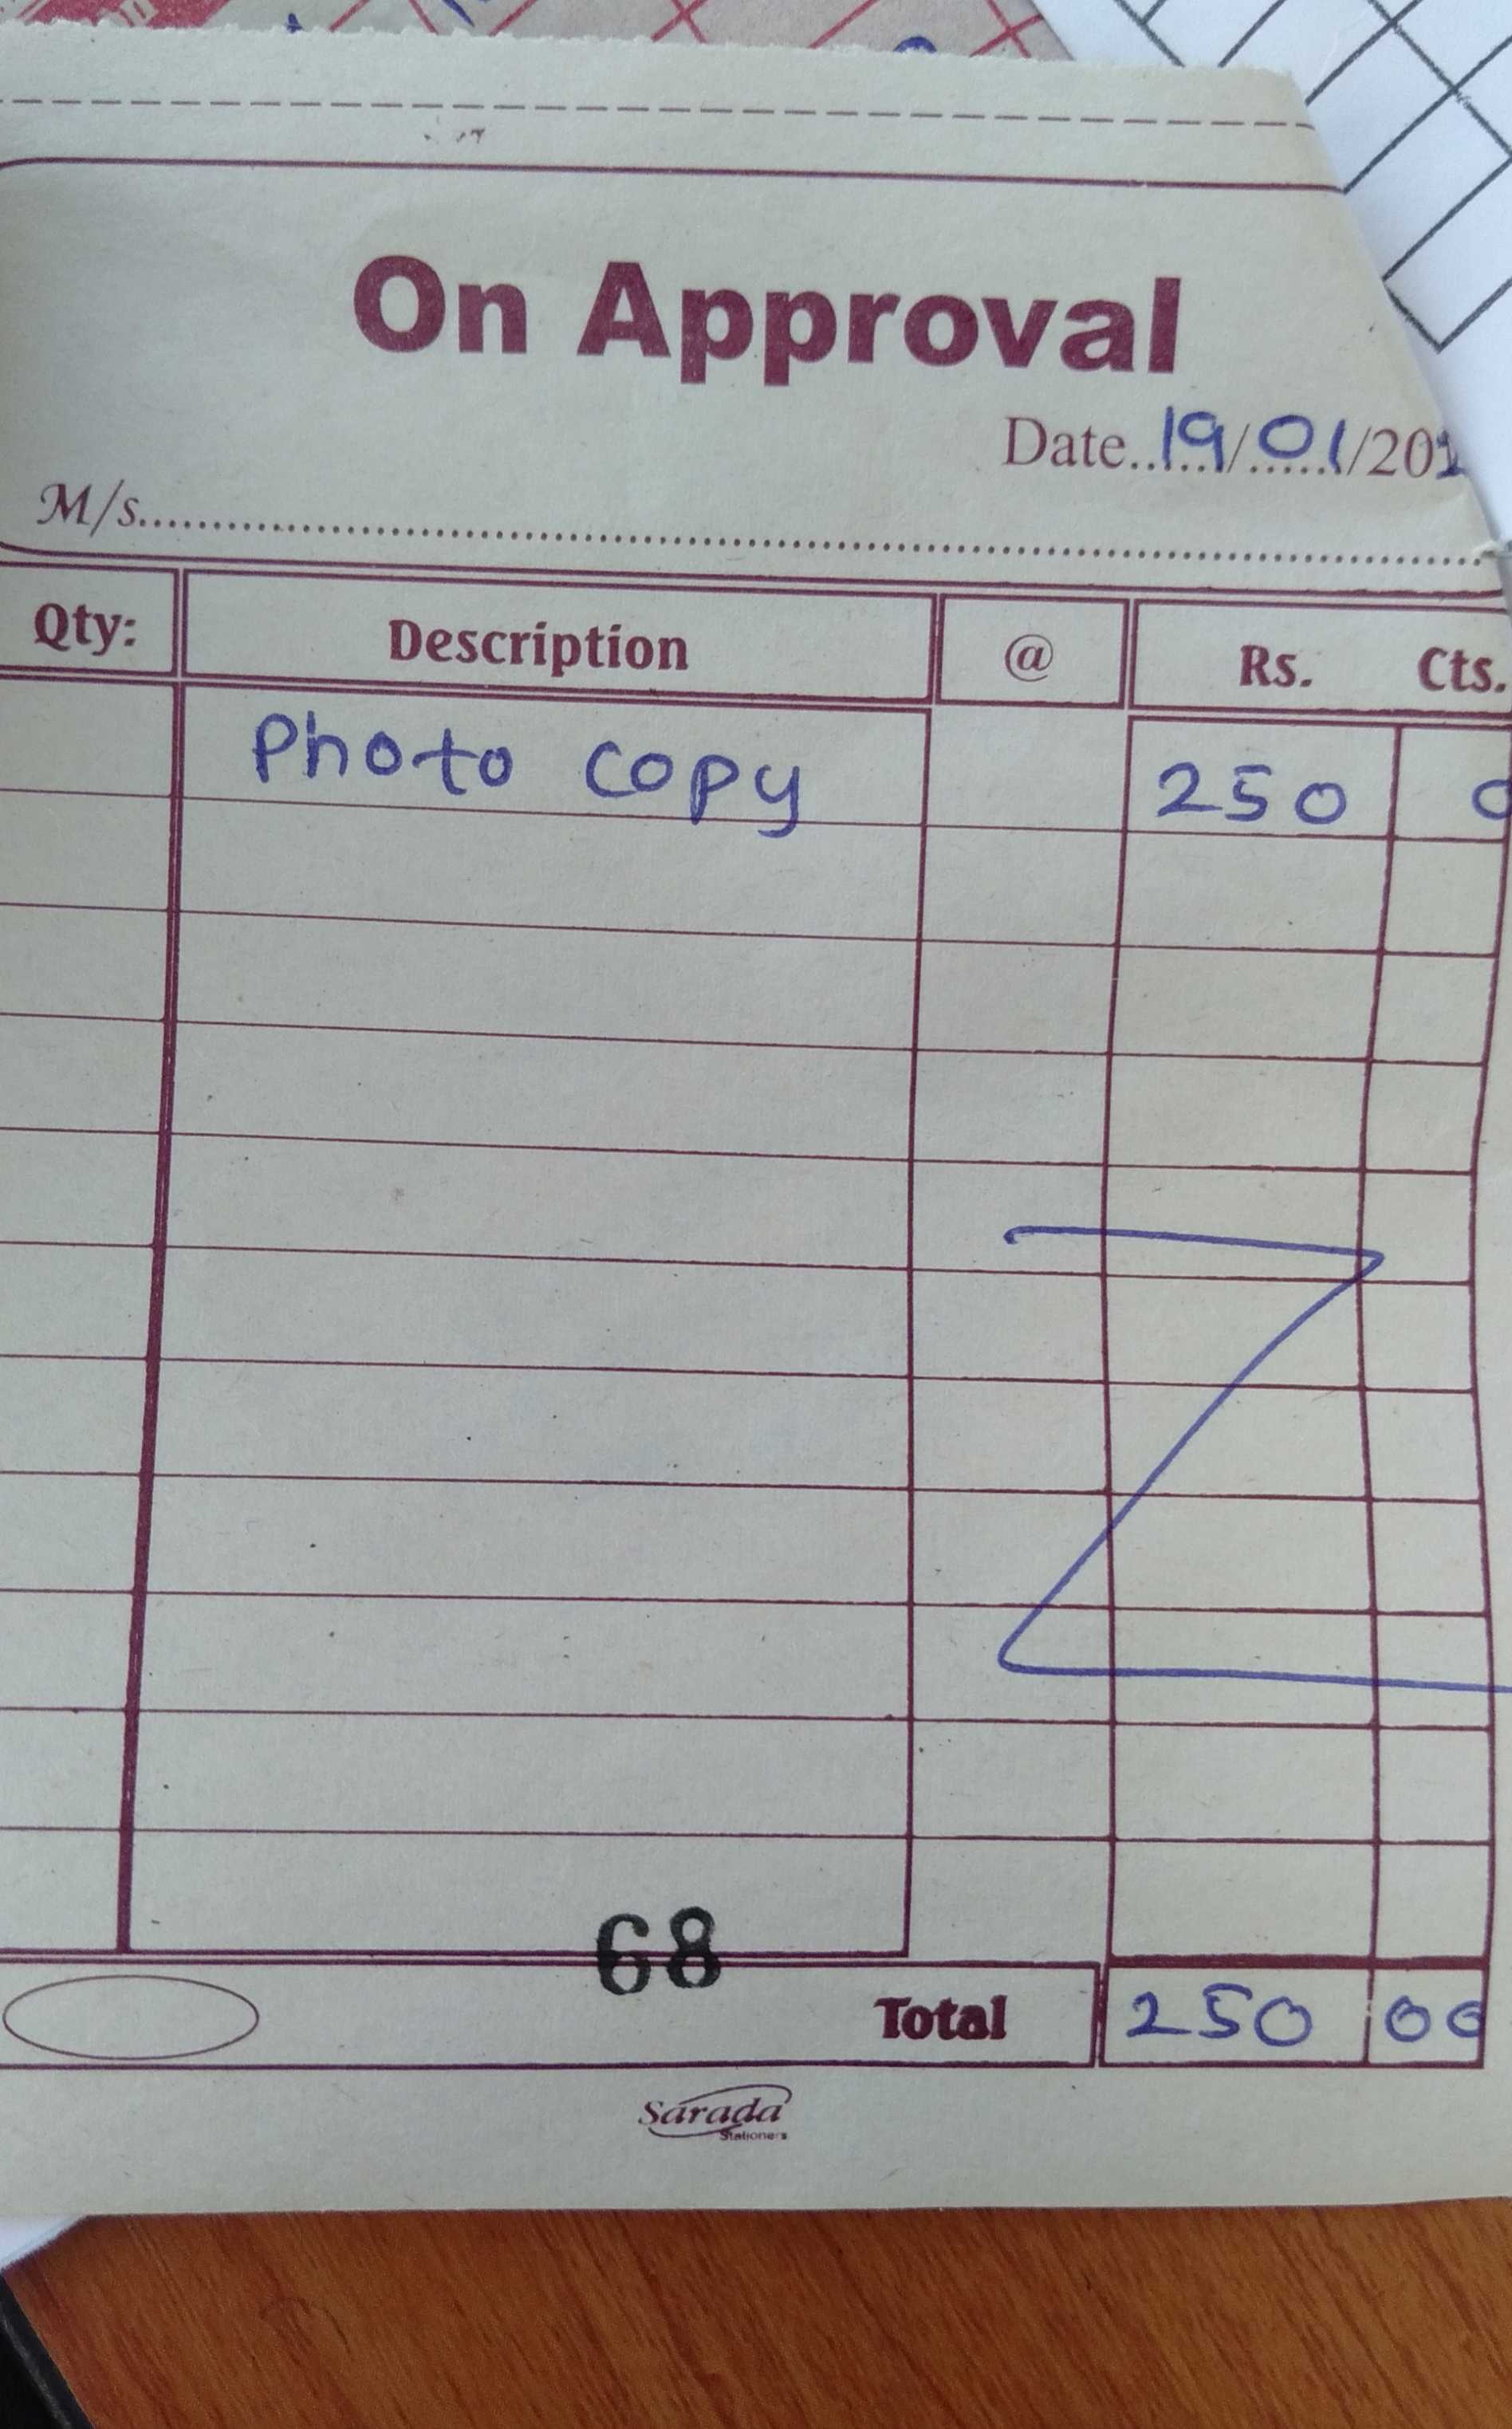 On Approval
Date..19/01/202
M/s.
Qty: Description @ Rs. Cts.
Photo copy 250 0
68
Total 250 00
Sarada
Stationers